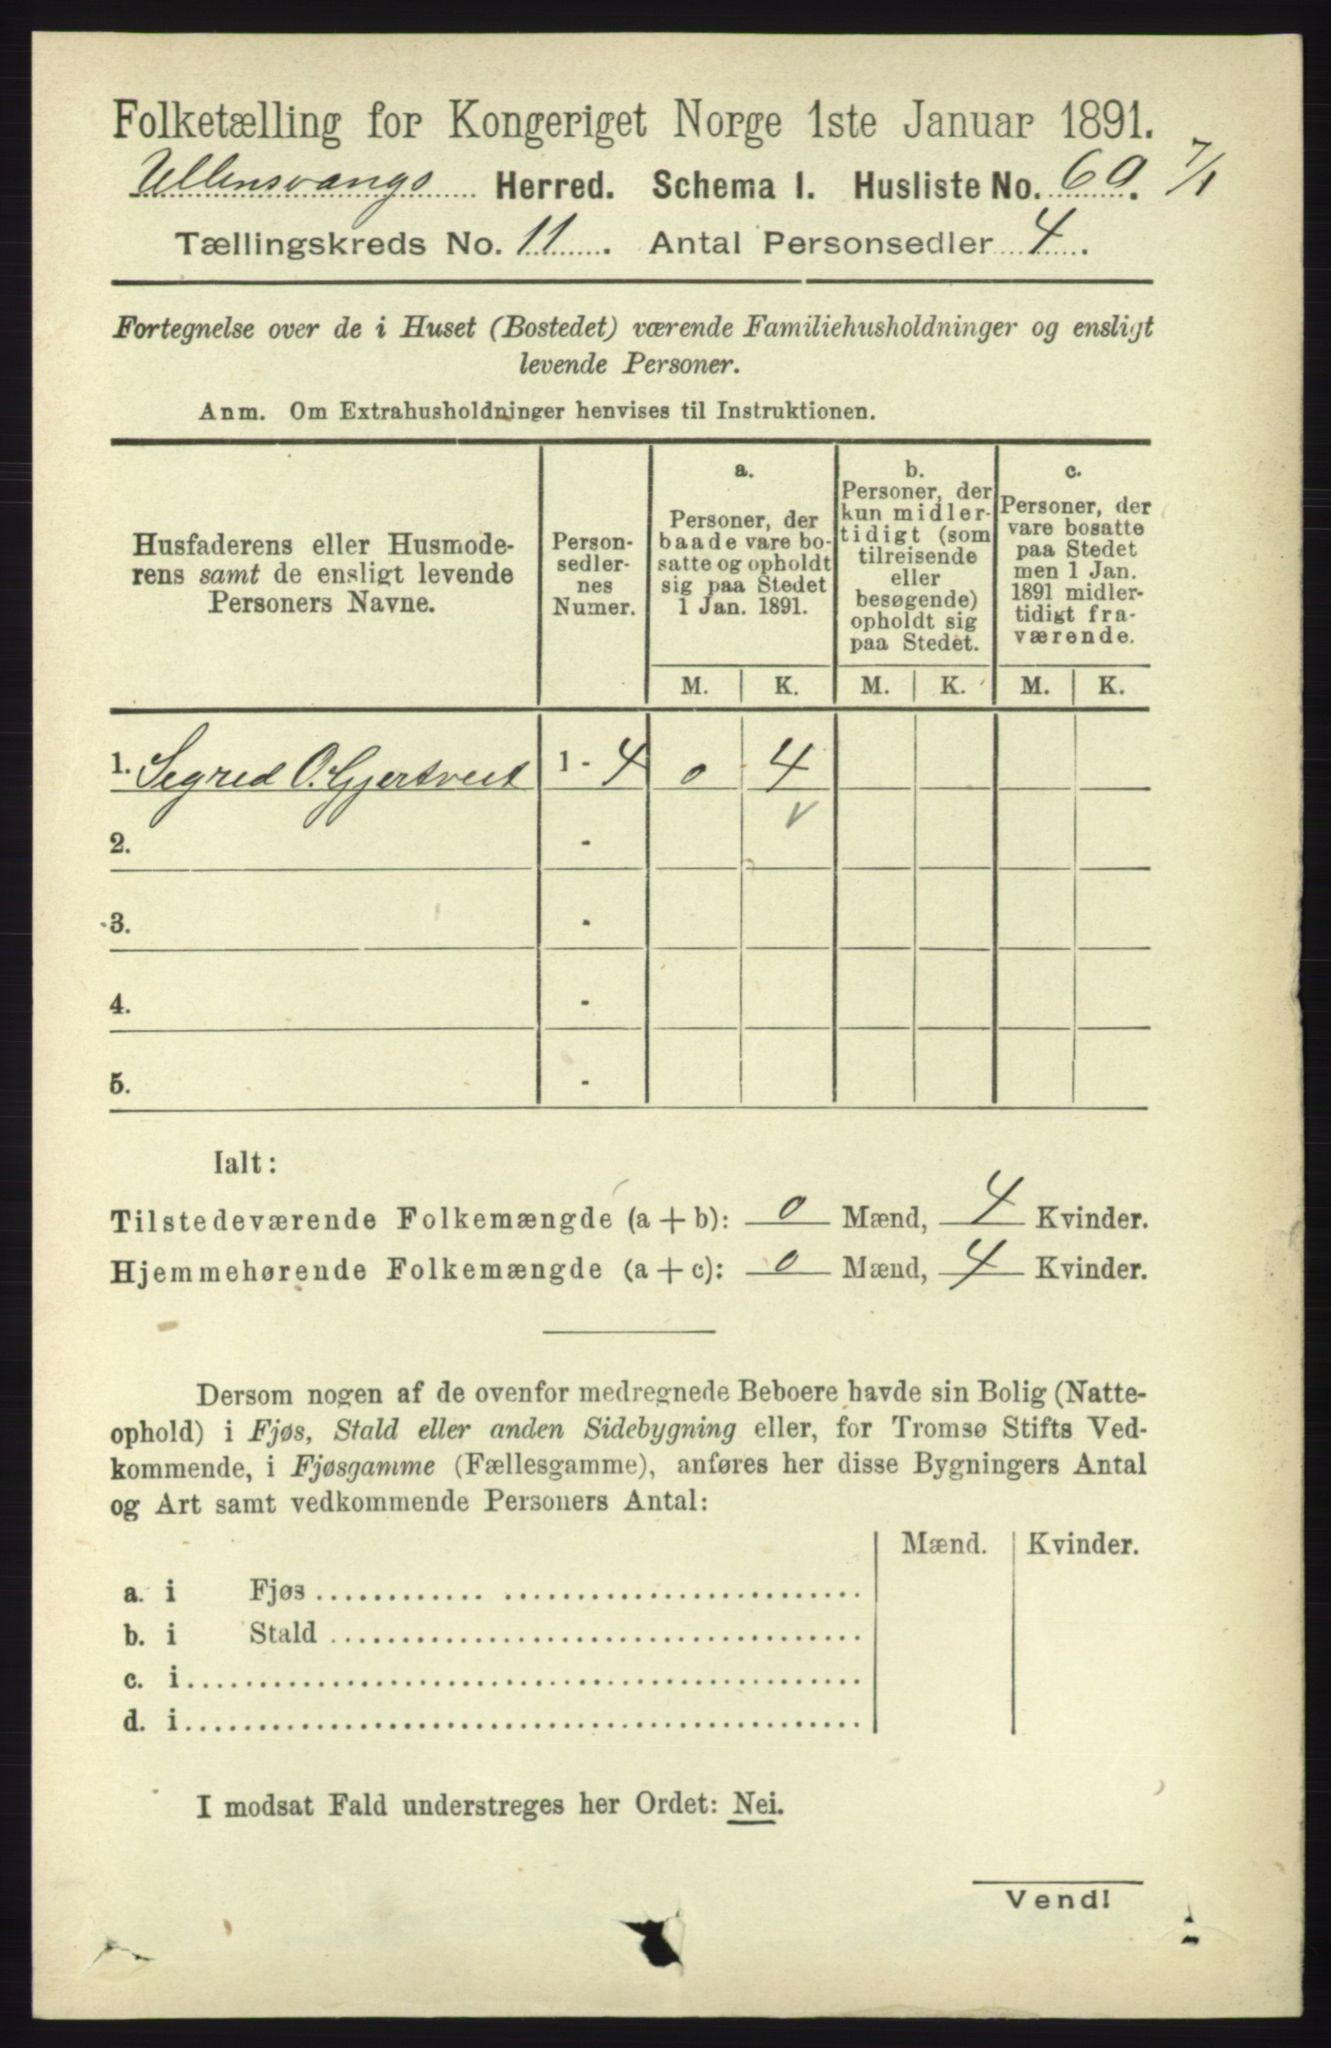 Folketælling for Kongeriget Norge 1ste Januar 1891.
Ullensvangs Herred. Schema 1. Husliste No. 60. 7/1
Tællingskreds No. 11. Antal Personsedler 4.
Fortegnelse over de i Huset (Bostedet) værende Familiehusholdninger og ensligt
levende Personer.
Anm. Om Extrahusholdninger henvises til Instruktionen.
Husfaderens eller Husmode-
rens samt de ensligt levende
Personers Navne.
Person-
sedler-
nes
Numer.
a.
Personer, der
baade vare bo-
satte og opholdt
sig paa Stedet
1 Jan. 1891.
b.
Personer, der
kun midler-
tidigt (som
tilreisende
eller
besøgende)
opholdt sig
paa Stedet.
c.
Personer, der
vare bosatte
paa Stedet
men 1 Jan.
1891 midler-
tidigt fra-
værende.
M. K. M. K. M. K.
1. Segred O. Gjertveit 1 - 4 0 - 4
2. -
3. -
4. -
5. -
Ialt:
Tilstedeværende Folkemængde (a + b): 0 Mænd, 4 Kvinder.
Hjemmehørende Folkemængde (a + c): 0 Mænd, 4 Kvinder.
Dersom nogen af de ovenfor medregnede Beboere havde sin Bolig (Natte-
ophold) i Fjøs, Stald eller anden Sidebygning eller, for Tromsø Stifts Ved-
kommende, i Fjøsgamme (Fællesgamme), anføres her disse Bygningers Antal
og Art samt vedkommende Personers Antal:
Mænd. Kvinder.
a. i Fjøs
b. i Stald
c. i
d. i
I modsat Fald understreges her Ordet: Nei.
Vend!